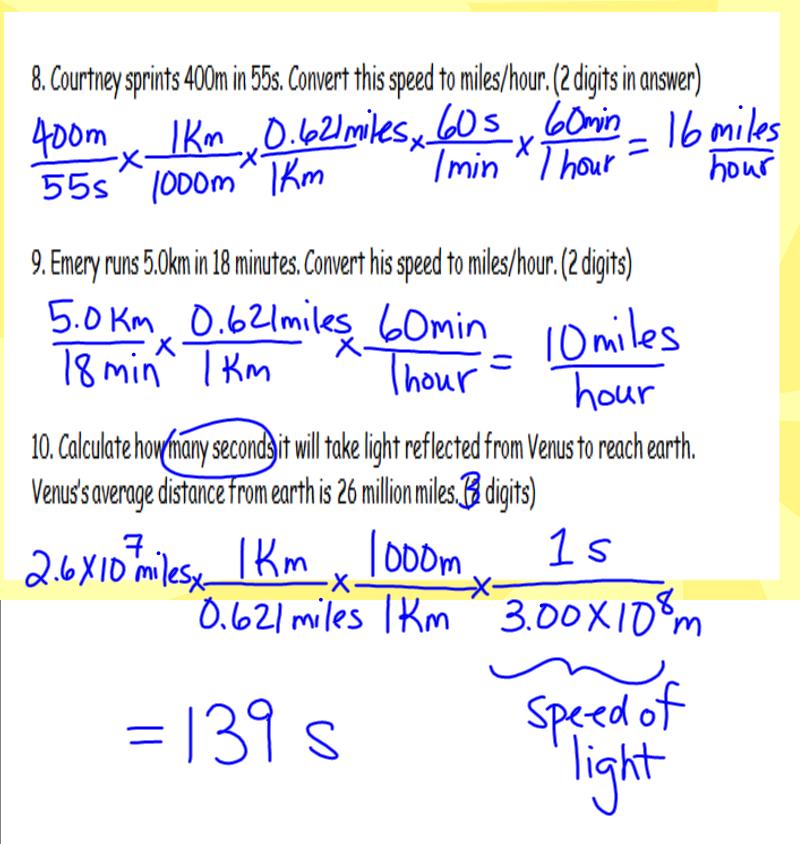 8. Courtney sprints 400m in 55s. Convert this speed to miles/hour. (2 digits in answer)
400m/55s × 1Km/1000m × 0.621miles/1Km × 60s/1min × 60min/1hour = 16 miles/hour
9. Emery runs 5.0km in 18 minutes. Convert his speed to miles/hour. (2 digits)
5.0Km/18min × 0.621miles/1Km × 60min/1hour = 10miles/hour
10. Calculate how many seconds it will take light reflected from Venus to reach earth.
Venus's average distance from earth is 26 million miles. (3 digits)
2.6X10⁷miles × 1Km/0.621miles × 1000m/1Km × 1s/3.00X10⁸m
= 139 s
speed of
light